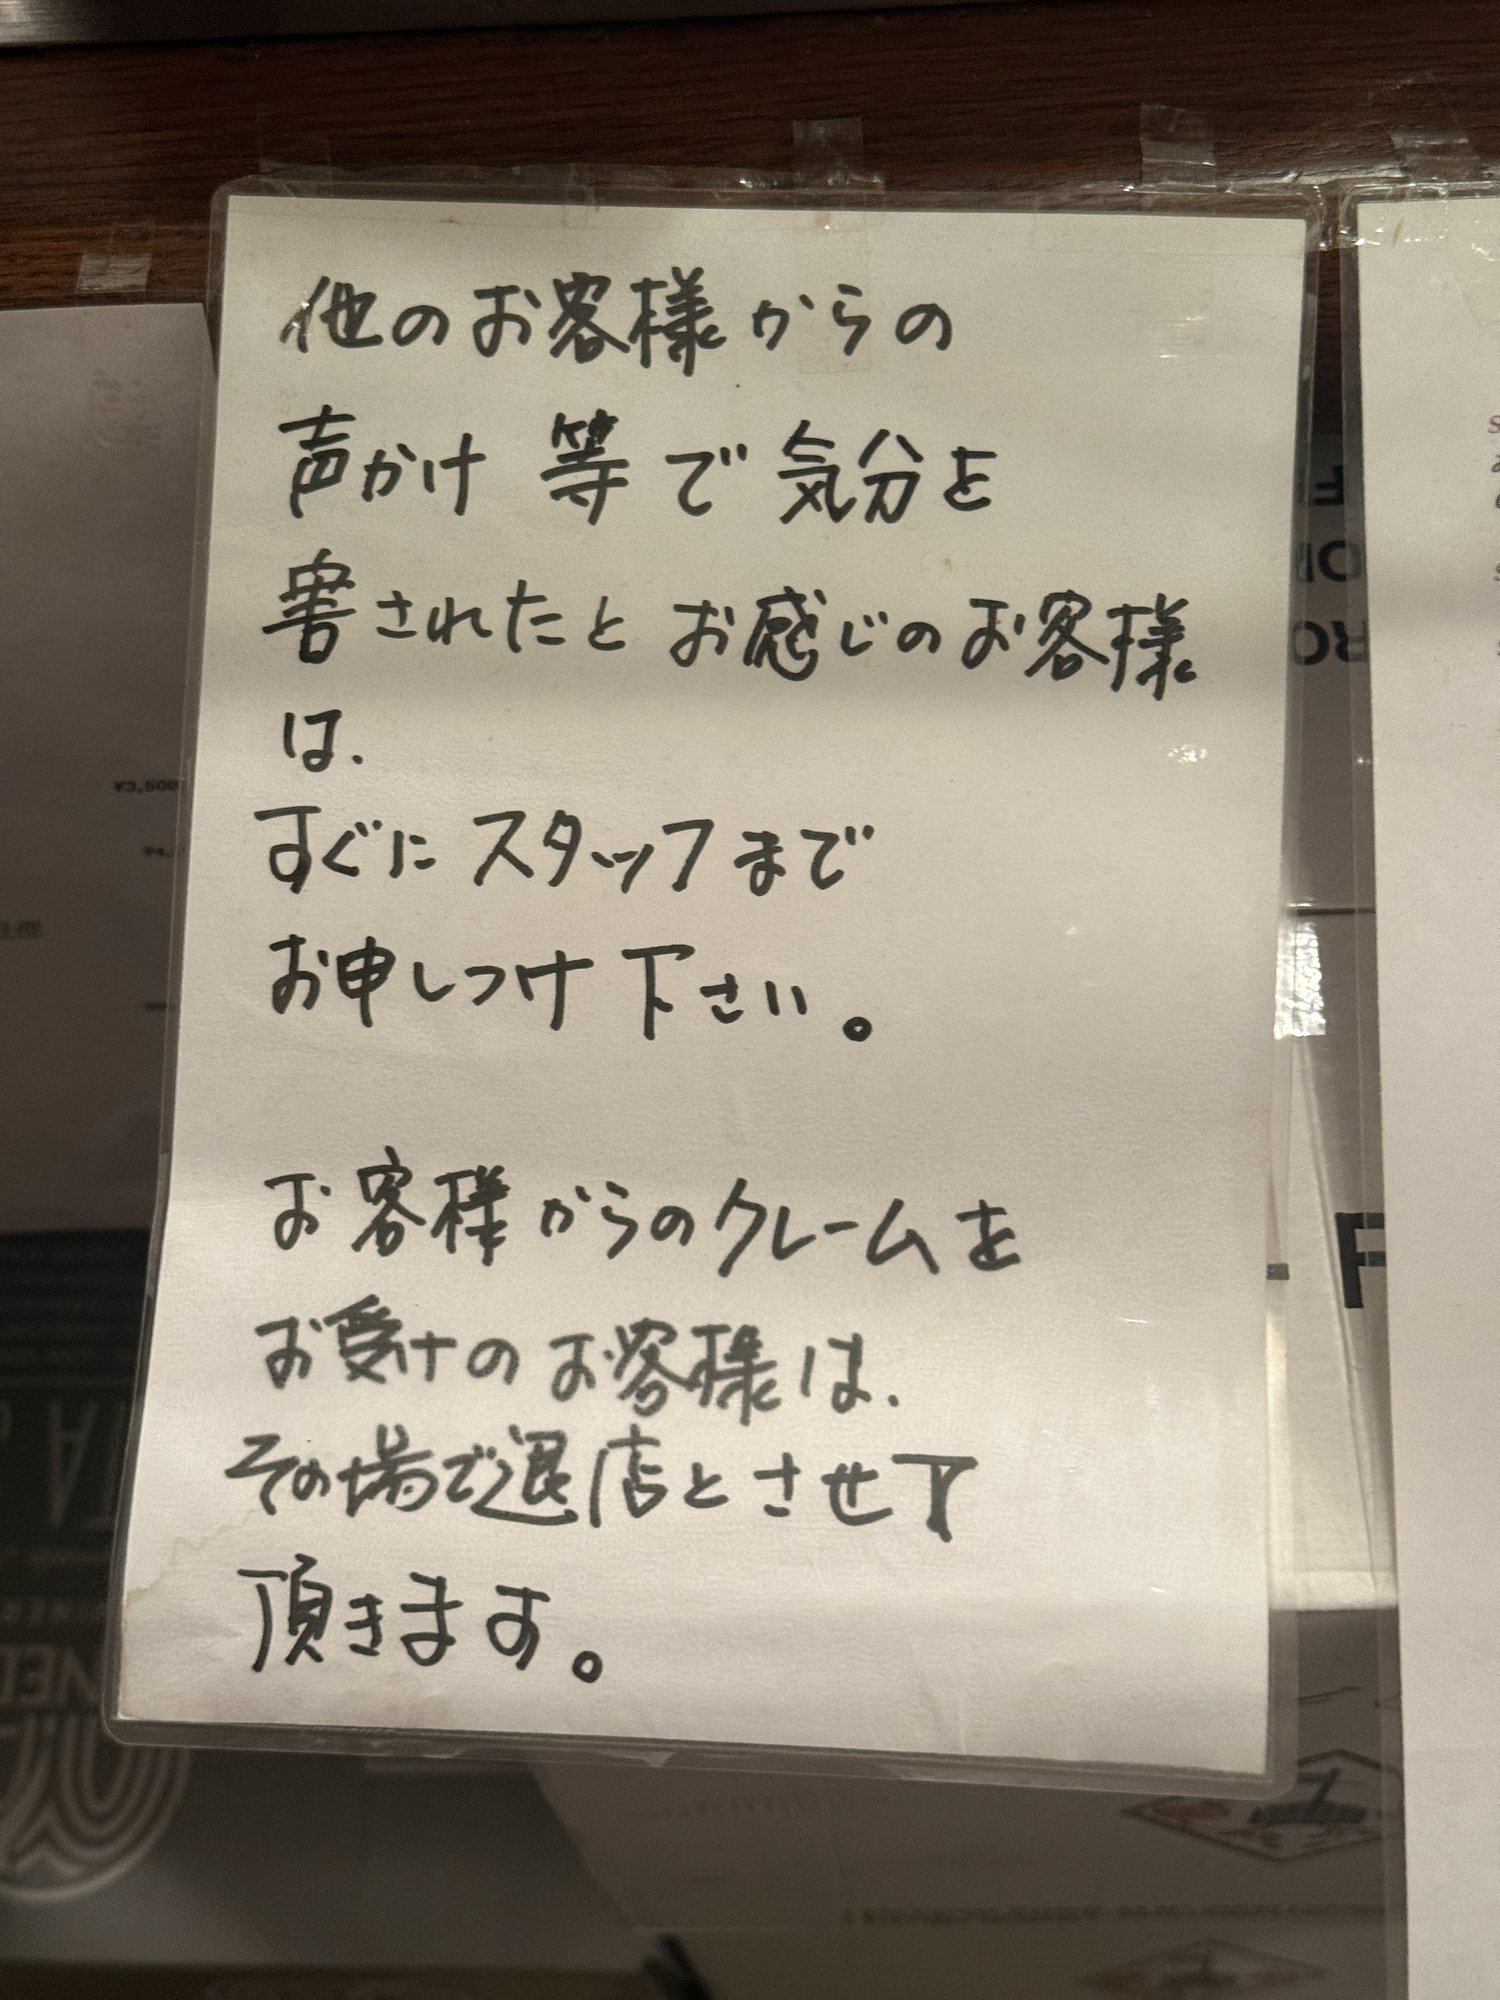 他のお客様からの
声かけ等で気分を
害されたとお感じのお客様
は、
すぐにスタッフまで
お申しつけ下さい。
お客様からのクレームを
お受けのお客様は、
その場で退店とさせて
頂きます。
¥3,500